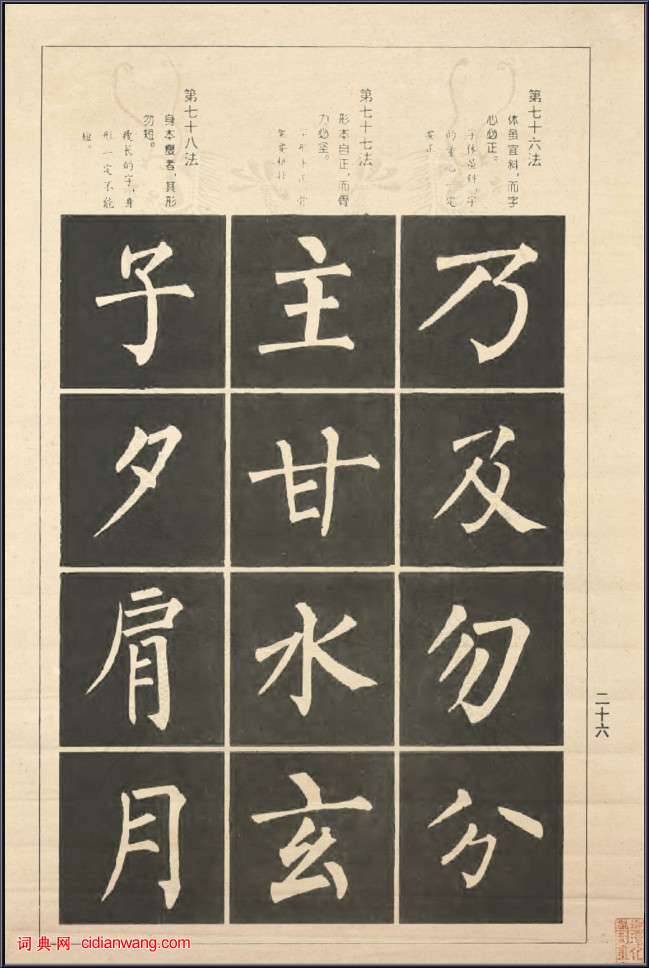 第七十六法
体虽宜斜，而字
心必正。
字体虽斜，字
的重心一定
要正。
乃
及
勿
分
第七十七法
形本自正，而骨
力必坚。
主
甘
水
玄
第七十八法
身本瘦者，其形
勿短。
瘦长的字，身
形一定不能
短。
子
夕
肩
月
二十六
词典网 - cidianwang.com